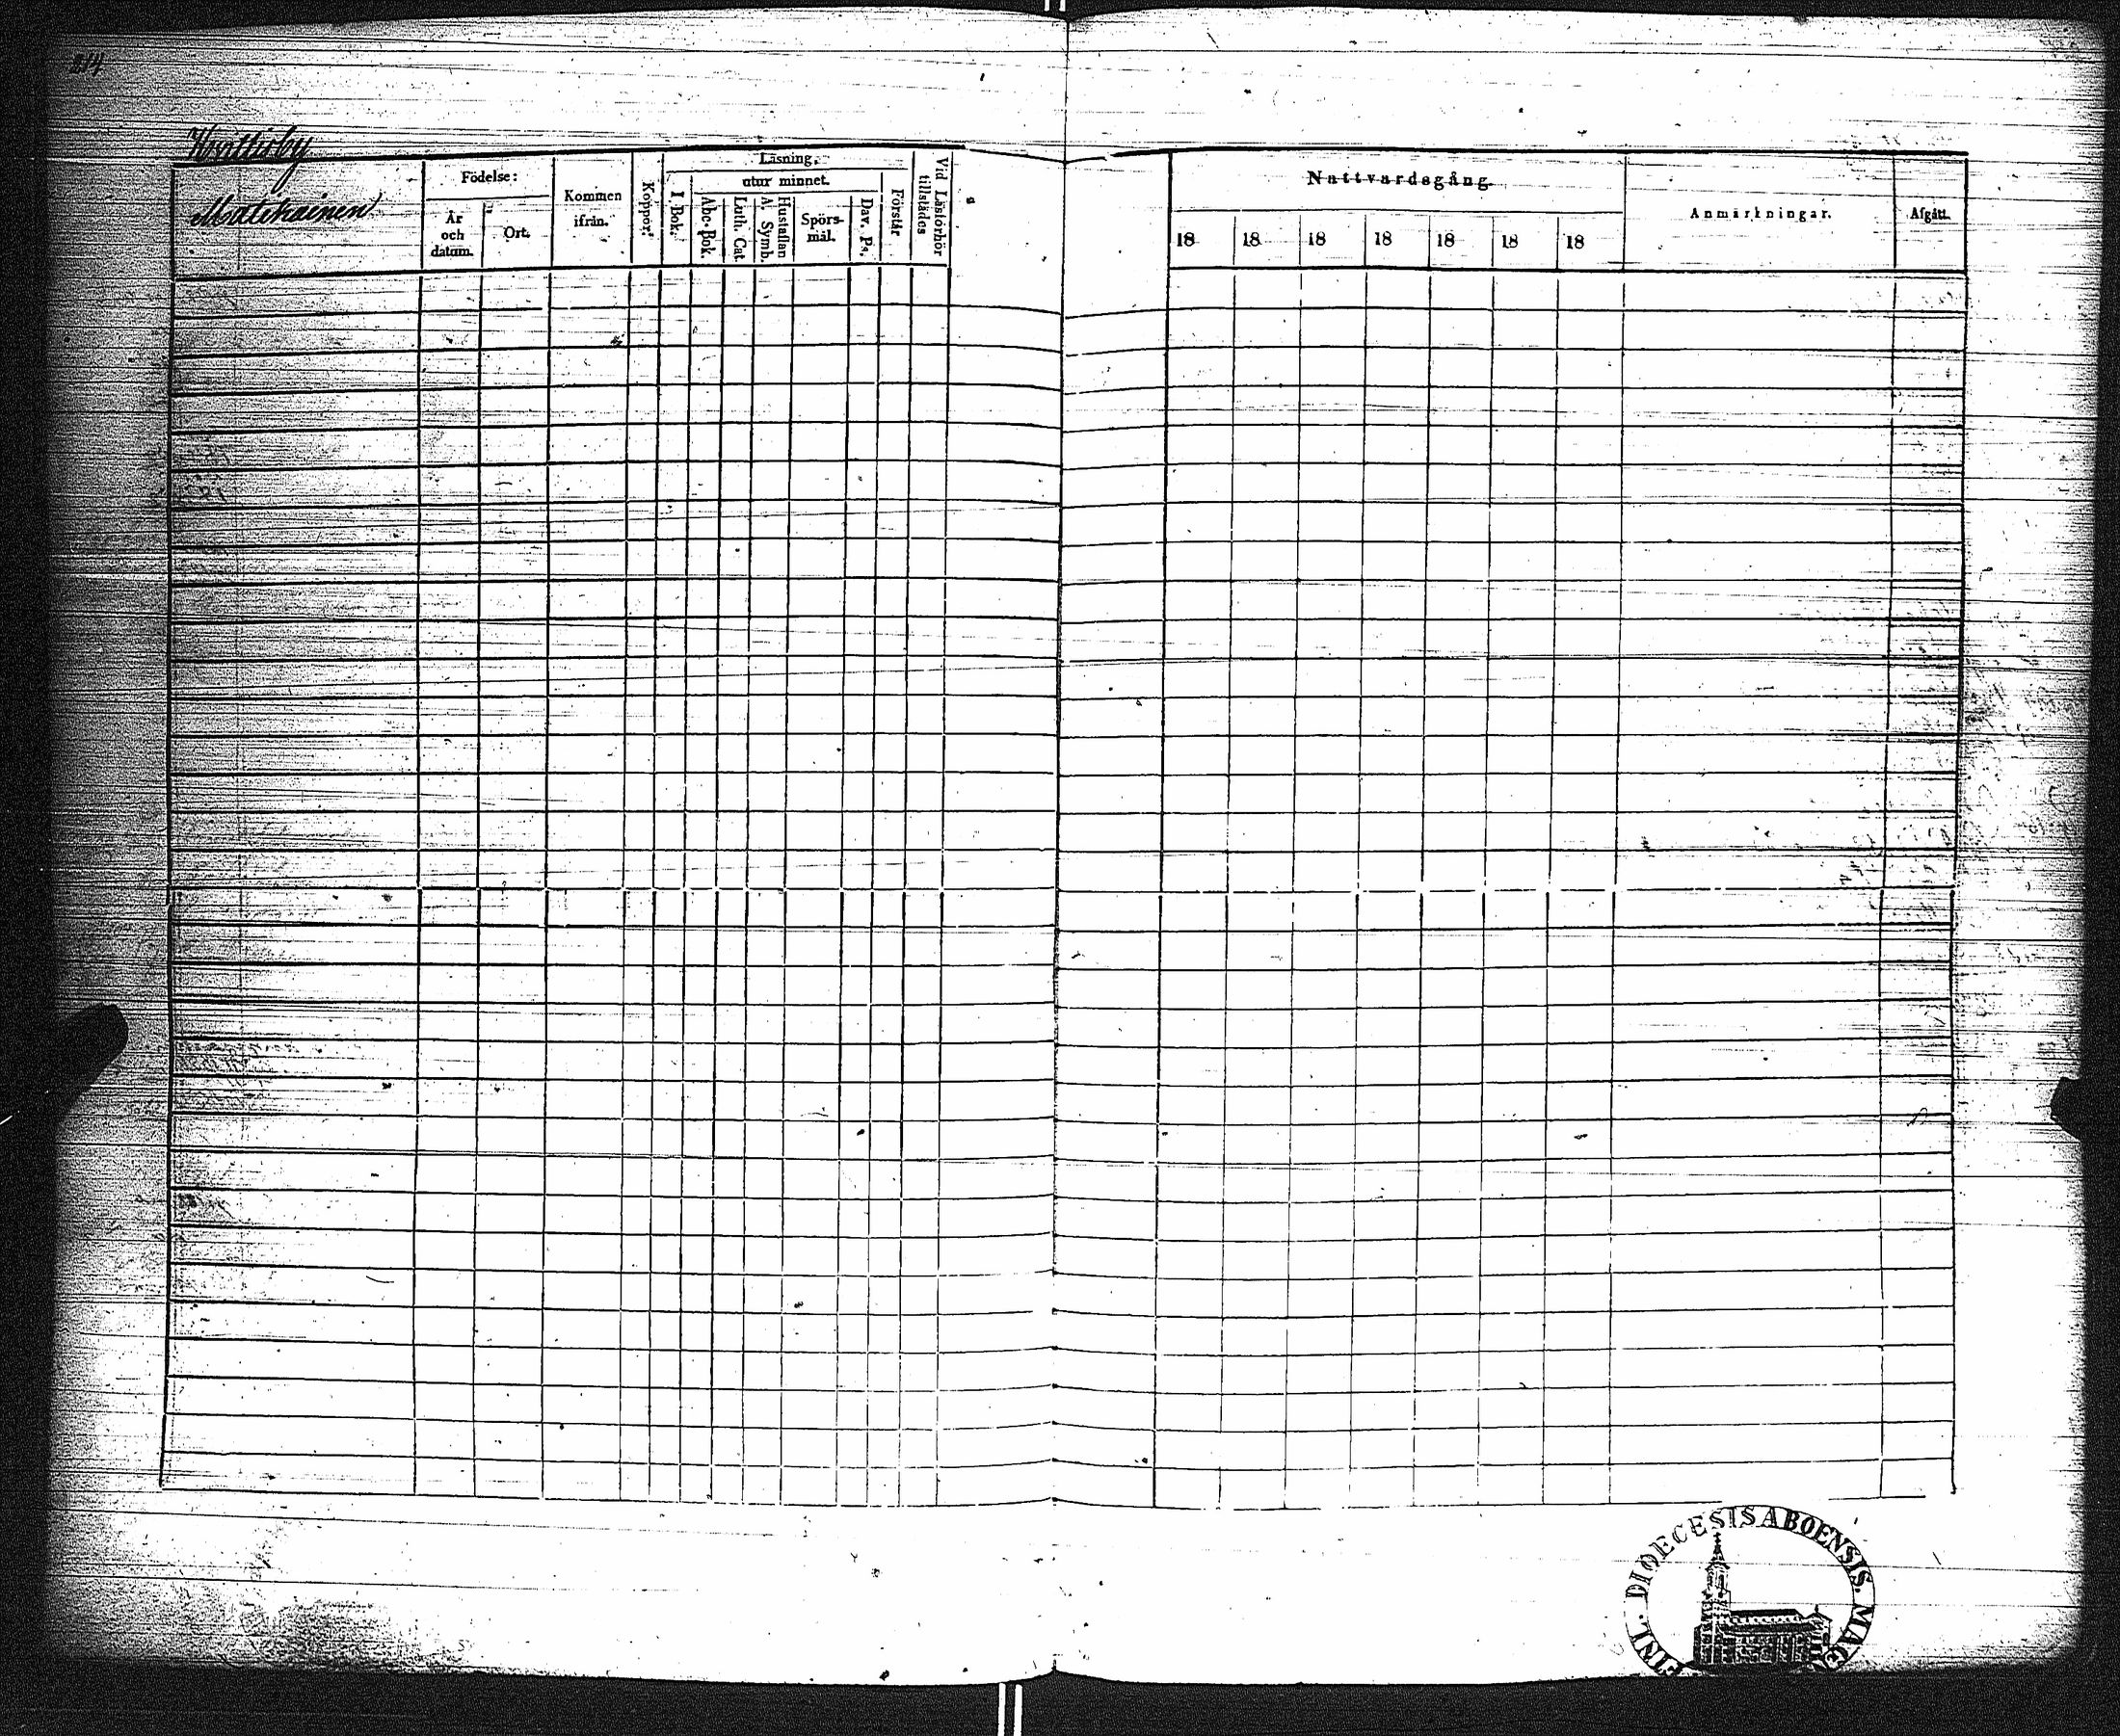 214
Födelse:
År och datum.
Ort.
Kommen ifrån.
Koppor.
Läsning.
I. Bok.
utur minnet.
Abc-Bok.
Luth. Cat.
Hustaflan A. Symb.
Spörs-mål.
Dav. Ps.
Förstår
Vid Läsförhör tillstädes
Nattvardsgång.
18 18 18 18 18 18 18
Anmärkningar.
Afgått.
DIOECESIS ABOENSIS